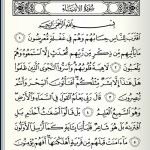 سُورَةُ الأَنبِيَاءِ
بِسْمِ ٱللَّهِ ٱلرَّحْمَٰنِ ٱلرَّحِيمِ
ٱقْتَرَبَ لِلنَّاسِ حِسَابُهُمْ وَهُمْ فِى غَفْلَةٍ مُّعْرِضُونَ ١
مَا يَأْتِيهِم مِّن ذِكْرٍ مِّن رَّبِّهِم مُّحْدَثٍ إِلَّا ٱسْتَمَعُوهُ وَهُمْ
يَلْعَبُونَ ٢ لَاهِيَةً قُلُوبُهُمْ وَأَسَرُّوا۟ ٱلنَّجْوَى ٱلَّذِينَ ظَلَمُوا۟
هَلْ هَٰذَآ إِلَّا بَشَرٌ مِّثْلُكُمْ أَفَتَأْتُونَ ٱلسِّحْرَ وَأَنتُمْ
تُبْصِرُونَ ٣ قَالَ رَبِّى يَعْلَمُ ٱلْقَوْلَ فِى ٱلسَّمَآءِ وَٱلْأَرْضِ
وَهُوَ ٱلسَّمِيعُ ٱلْعَلِيمُ ٤ بَلْ قَالُوٓا۟ أَضْغَٰثُ أَحْلَٰمٍ بَلِ
ٱفْتَرَىٰهُ بَلْ هُوَ شَاعِرٌ فَلْيَأْتِنَا بِـَٔايَةٍ كَمَآ أُرْسِلَ ٱلْأَوَّلُونَ